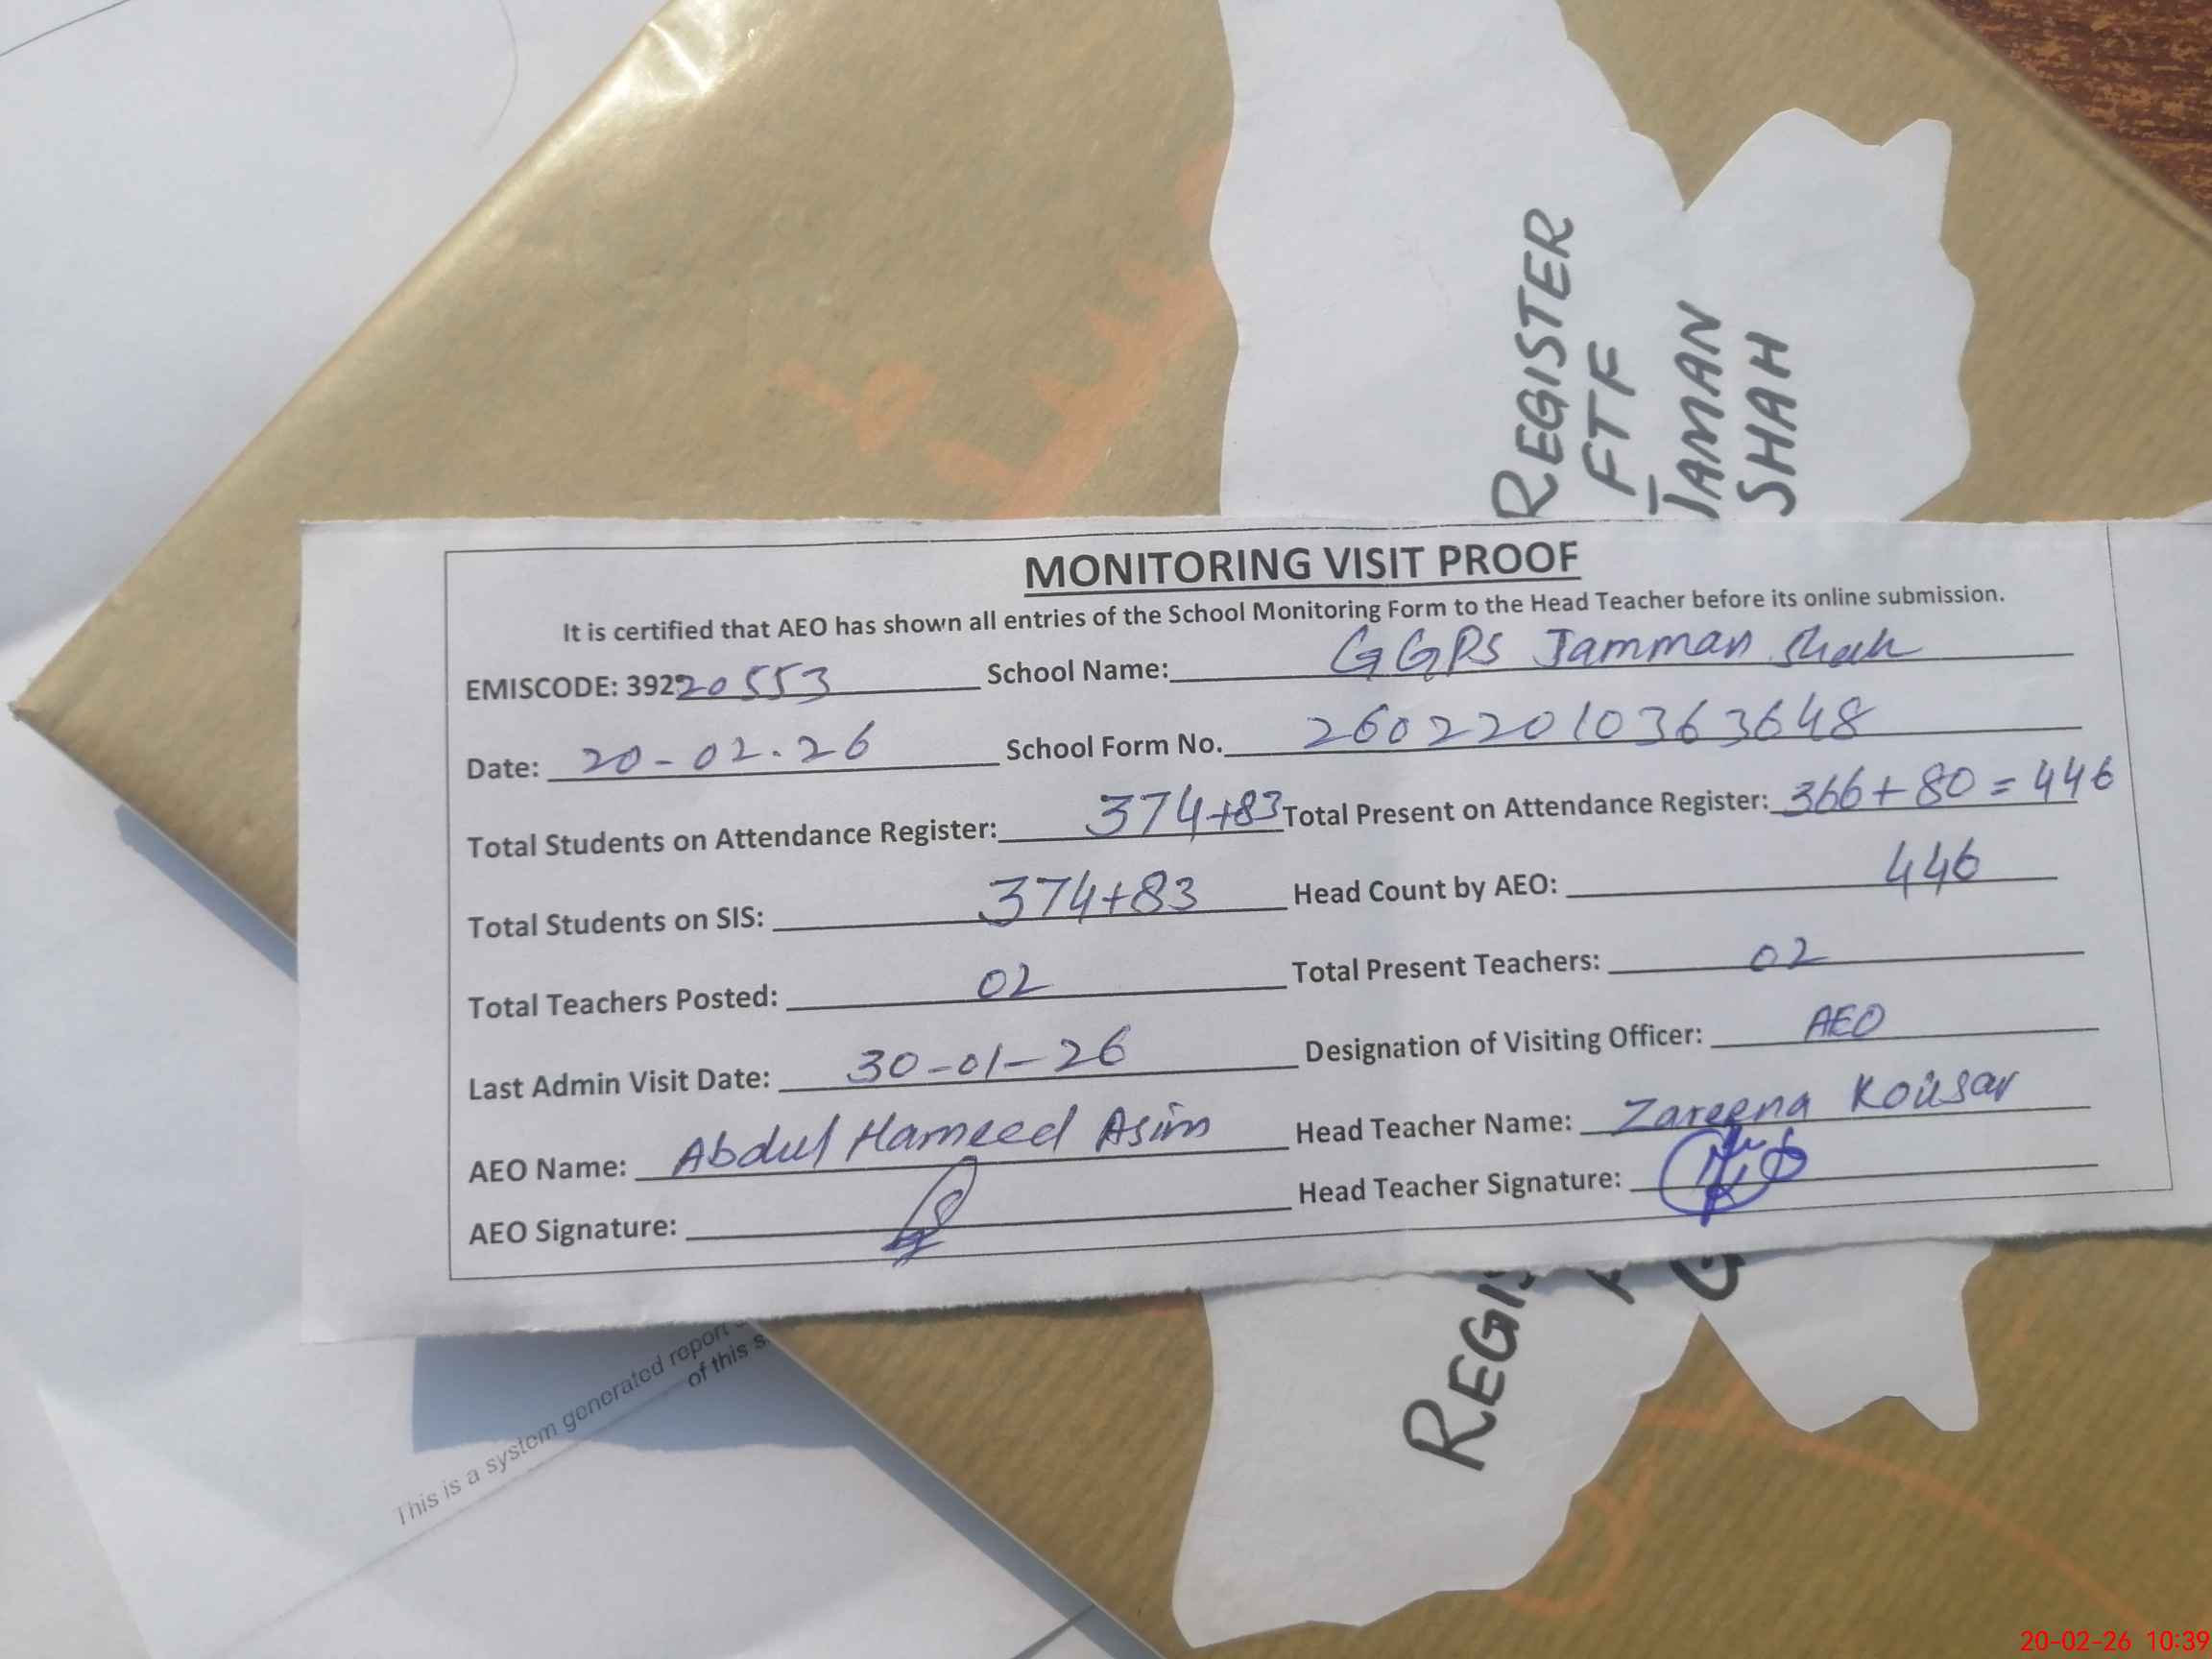 REGISTER
FTF
JAMAN
SHAH
MONITORING VISIT PROOF
It is certified that AEO has shown all entries of the School Monitoring Form to the Head Teacher before its online submission.
EMISCODE: 39220553 School Name: GGPS Jamman Shah
Date: 20-02-26 School Form No. 26022010363648
Total Students on Attendance Register: 374+83 Total Present on Attendance Register: 366+80=446
Total Students on SIS: 374+83 Head Count by AEO: 446
Total Teachers Posted: 02 Total Present Teachers: 02
Last Admin Visit Date: 30-01-26 Designation of Visiting Officer: AEO
AEO Name: Abdul Hameed Asim Head Teacher Name: Zareena Kousar
AEO Signature: Head Teacher Signature:
REGIS
This is a system generated report
of this s
20-02-26 10:39